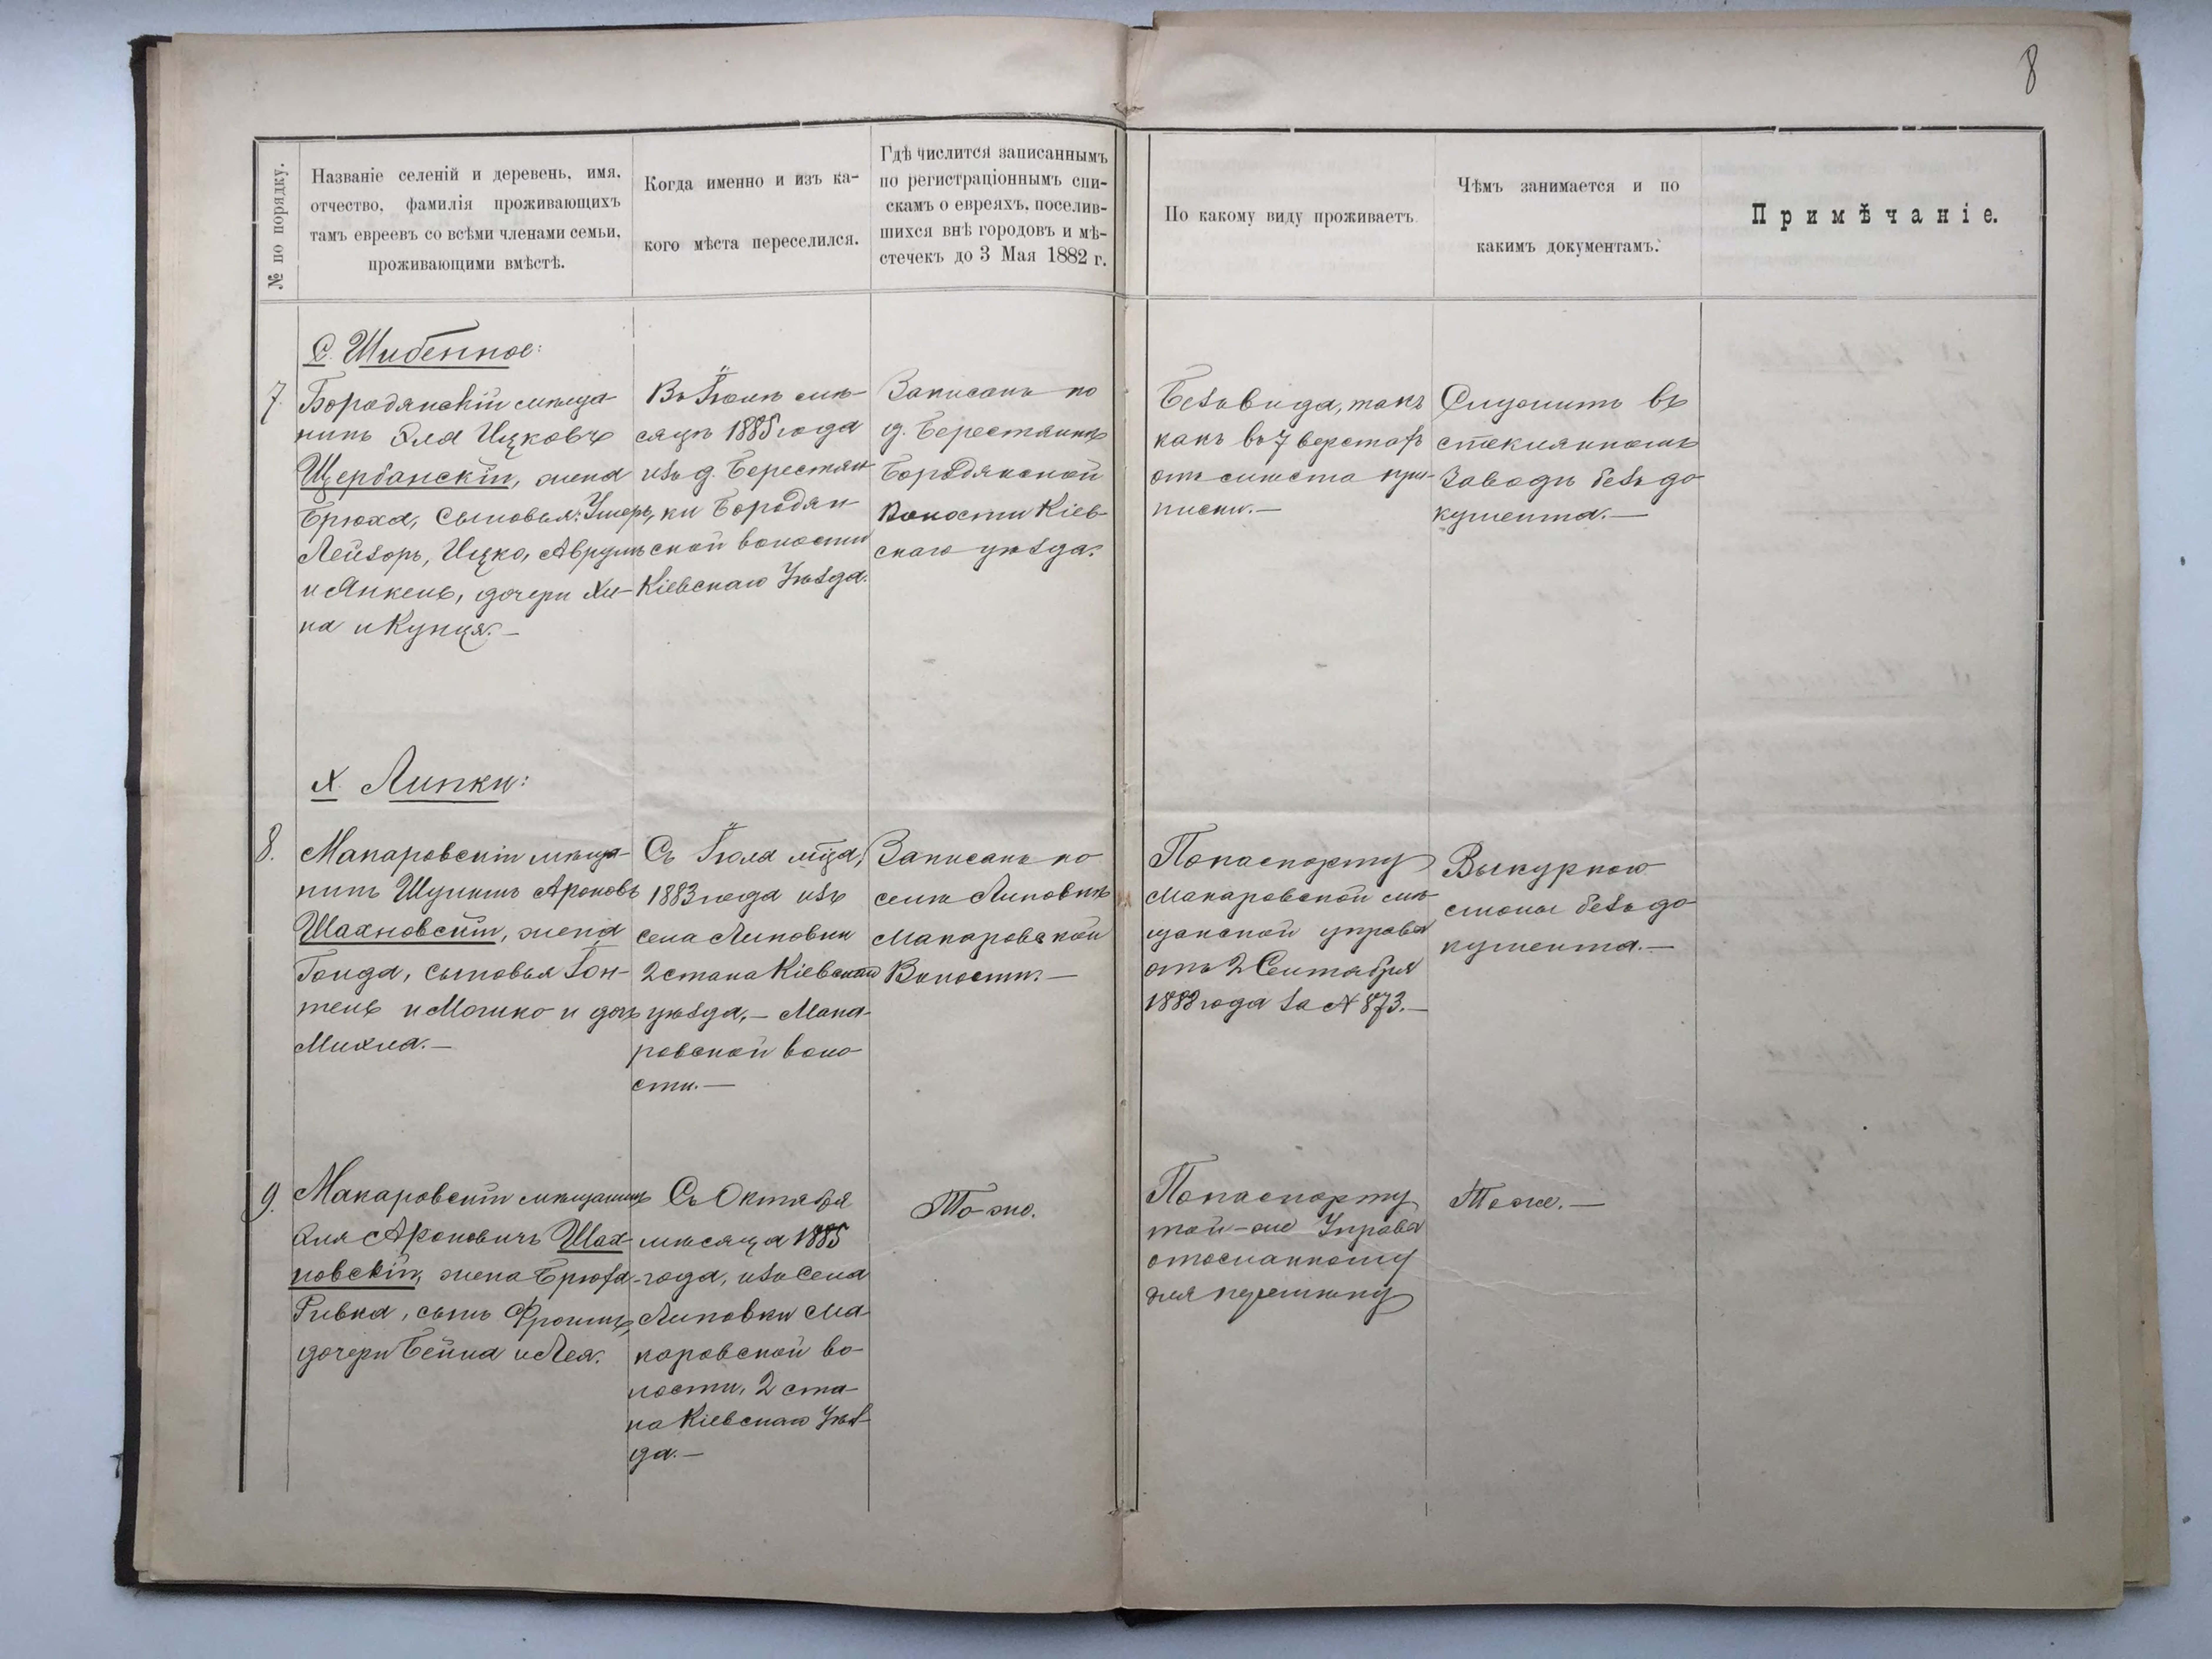 8
№ по порядку.
Названіе селеній и деревень, имя,
отчество, фамилія проживающихъ
тамъ евреевъ со всѣми членами семьи,
проживающими вмѣстѣ.
Когда именно и изъ ка-
кого мѣста переселился.
Гдѣ числится записаннымъ
по регистраціоннымъ спи-
скамъ о евреяхъ, поселив-
шихся внѣ городовъ и мѣ-
стечекъ до 3 Мая 1882 г.
По какому виду проживаетъ.
Чѣмъ занимается и по
какимъ документамъ.
Примѣчаніе.
С. Шибенное:
7.
Бородянскій мѣща-
нинъ Эля Ицковъ
Щербанскій, жена
Брюха, сыновья:
Лейзоръ, Ицко, Аврумъ
и Янкель, дочери Хи-
на и Кунця.—
Въ Іюлѣ мѣ-
сяцѣ 1885 года
изъ д. Берестян-
ки Бородян
ской волости
Кіевскаго Уѣзда.
Записанъ по
д. Берестянкѣ
Бородянской
Волости Кіев-
скаго уѣзда.
Безъ вида, такъ
какъ въ 7 верстахъ
отъ мѣста при-
писки.—
Служитъ въ
стеклянномъ
Заводѣ безъ до
кумента.—
Х. Липки:
8.
Макаровскій мѣща-
нинъ Шулимъ Ароновъ
Шахновскій, жена
Голда, сыновья Іон-
тель и Мошко и дочь
Михля.—
Съ Іюля мца,
1883 года изъ
села Липовки
2 стана Кіевскаго
уѣзда,— Мака-
ровской воло-
сти.—
Записанъ по
селѣ Липовкѣ
Макаровской
Волости.—
По паспорту
Макаровской мѣ-
щанской управы
отъ 2 Сентября
1883 года за № 873.—
Выкуркою
смолы безъ до
кумента.—
9.
Макаровскій мѣщанинъ
Эля Ароновичъ Шах-
новскій, жена Брюха-
Ривка, сынъ Фроимъ,
дочери Бейла и Лея.
Съ Октября
мѣсяца 1885
года, изъ Села
Липовки Ма-
каровской во-
лости, 2 ста-
на Кіевскаго Уѣз-
да.—
То-же.
По паспорту
той-же Управы
отосланному
для перемѣны
Тоже.—